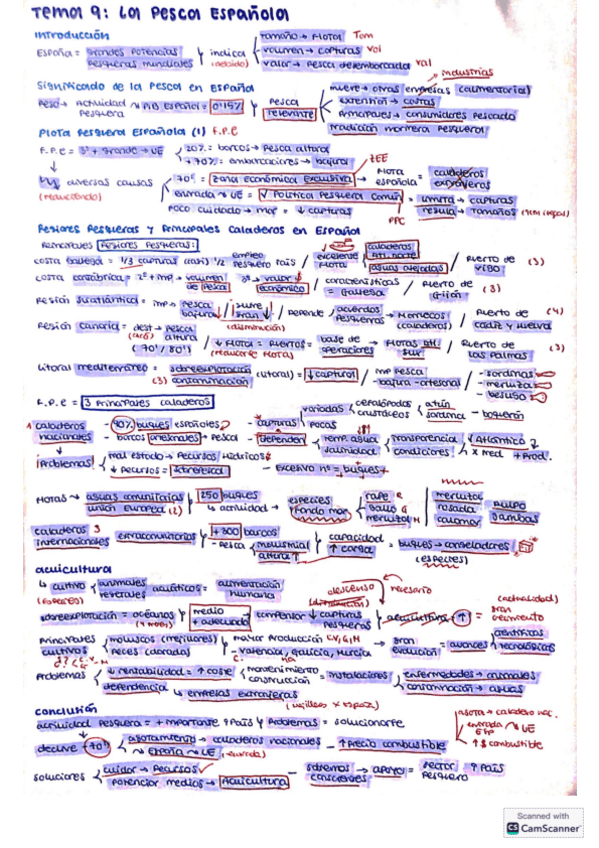 Tema 9: La Pesca Española
Introducción
tamaño → Flota Tam
España = Grandes Potencias Pesqueras Mundiales indica (debido) volumen → capturas Vol
valor → Pesca desembarcada val
→ industrias
Significado de la Pesca en España
Peso → Actividad Pesquera PIB Español = 0'15% y Pesca relevante
mueve → otras empresas (alimentaria)
extensión → costas
Principales → consumidores Pescado
tradición marinera Pesquera
Flota Pesquera Española (1) F.P.E
F.P.E = 3ª + grande → UE 20% = barcos → Pesca altura
+ 70% = embarcaciones → bajura
ZEE
diversas causas (reduciendo)
70' = Zona Económica Exclusiva → Flota española = caladeros
entrada UE = Política Pesquera Común = limita → capturas
regula → tamaños
PPC
Poco cuidado → mar = ↓ capturas
Regiones Pesqueras y Principales Caladeros en España
Principales Regiones Pesqueras:
costa gallega = 1/3 capturas (casi) 1/2 empleo Pesquero País / excelente Flota / caladeros Atl. norte aguas alejadas / Puerto de Vigo (3)
costa cantábrica = 2ª + imp → volumen de Pesca / 3ª → valor económico / características = Gallega / Puerto de Gijón (3)
Región Suratlántica = imp → Pesca bajura ↓ / Depende acuerdos Pesqueros → Marruecos (caladeros) / Puerto de Cádiz y Huelva (4)
(disminución)
Región Canaria = Pesca altura (70'/80') / ↓ Flota = Puertos = base de operaciones → Flotas atl. sur / Puerto de Las Palmas (3)
(reducción flota)
Litoral mediterráneo = sobreexplotación (3) contaminación (litoral) = ↓ capturas / imp Pesca - bajura - artesanal / - sardinas
- merluza
- besugo
F.P.E = 3 Principales caladeros
1 caladeros nacionales - 90% buques españoles - capturas variadas cefalópodos crustáceos atún sardina - boquerón
Pocas
- barcos → Pesca - Dependen temp. agua salinidad transparencia condiciones Atlántico
x Med + Prod.
¡Problemas! mal estado → Recursos hídricos
↓ Recursos = sobreexplot - excesivo nº = buques +
Flotas → aguas comunitarias Unión Europea (2) 250 buques
↳ actividad → especies Fondo mar rape R
gallo G
merluza M
merluza
rosada
calamar
pulpo
gambas
caladeros 3 internacionales extracomunitarios + 300 barcos
- Pesca industrial altura ↑ capacidad ↑ carga = buques → congeladores
(especies)
Acuicultura
↳ cultivo (especies) animales vegetales acuáticos = alimentación humana
descenso (disminución) necesario
(actualidad)
sobreexplotación = océanos y medio + adecuado → compensar ↓ capturas Pesqueras = acuicultura ↑ = gran crecimiento
Principales cultivos moluscos (mejillones) Peces (dorada) mayor Producción C,V,G,M
- Valencia, Galicia, Murcia → gran evolución = avances científicos tecnológicos
Problemas ↓ rentabilidad = ↑ coste mantenimiento construcción = instalaciones enfermedades → animales
contaminación → aguas
dependencia ↳ empresas extranjeras
Conclusión
actividad Pesquera = + importante ↑ País y Problemas = solucionarse
asota → caladero nac.
entrada Esp → UE
↑ $ combustible
declive → 70' agotamiento → caladeros nacionales - ↑ Precio combustible
España → UE (entrada)
soluciones cuidar → Recursos
Potenciar medios → Acuicultura - sabremos conscientes → apoyo = sector Pesquero ↑ País
Scanned with
CS CamScanner